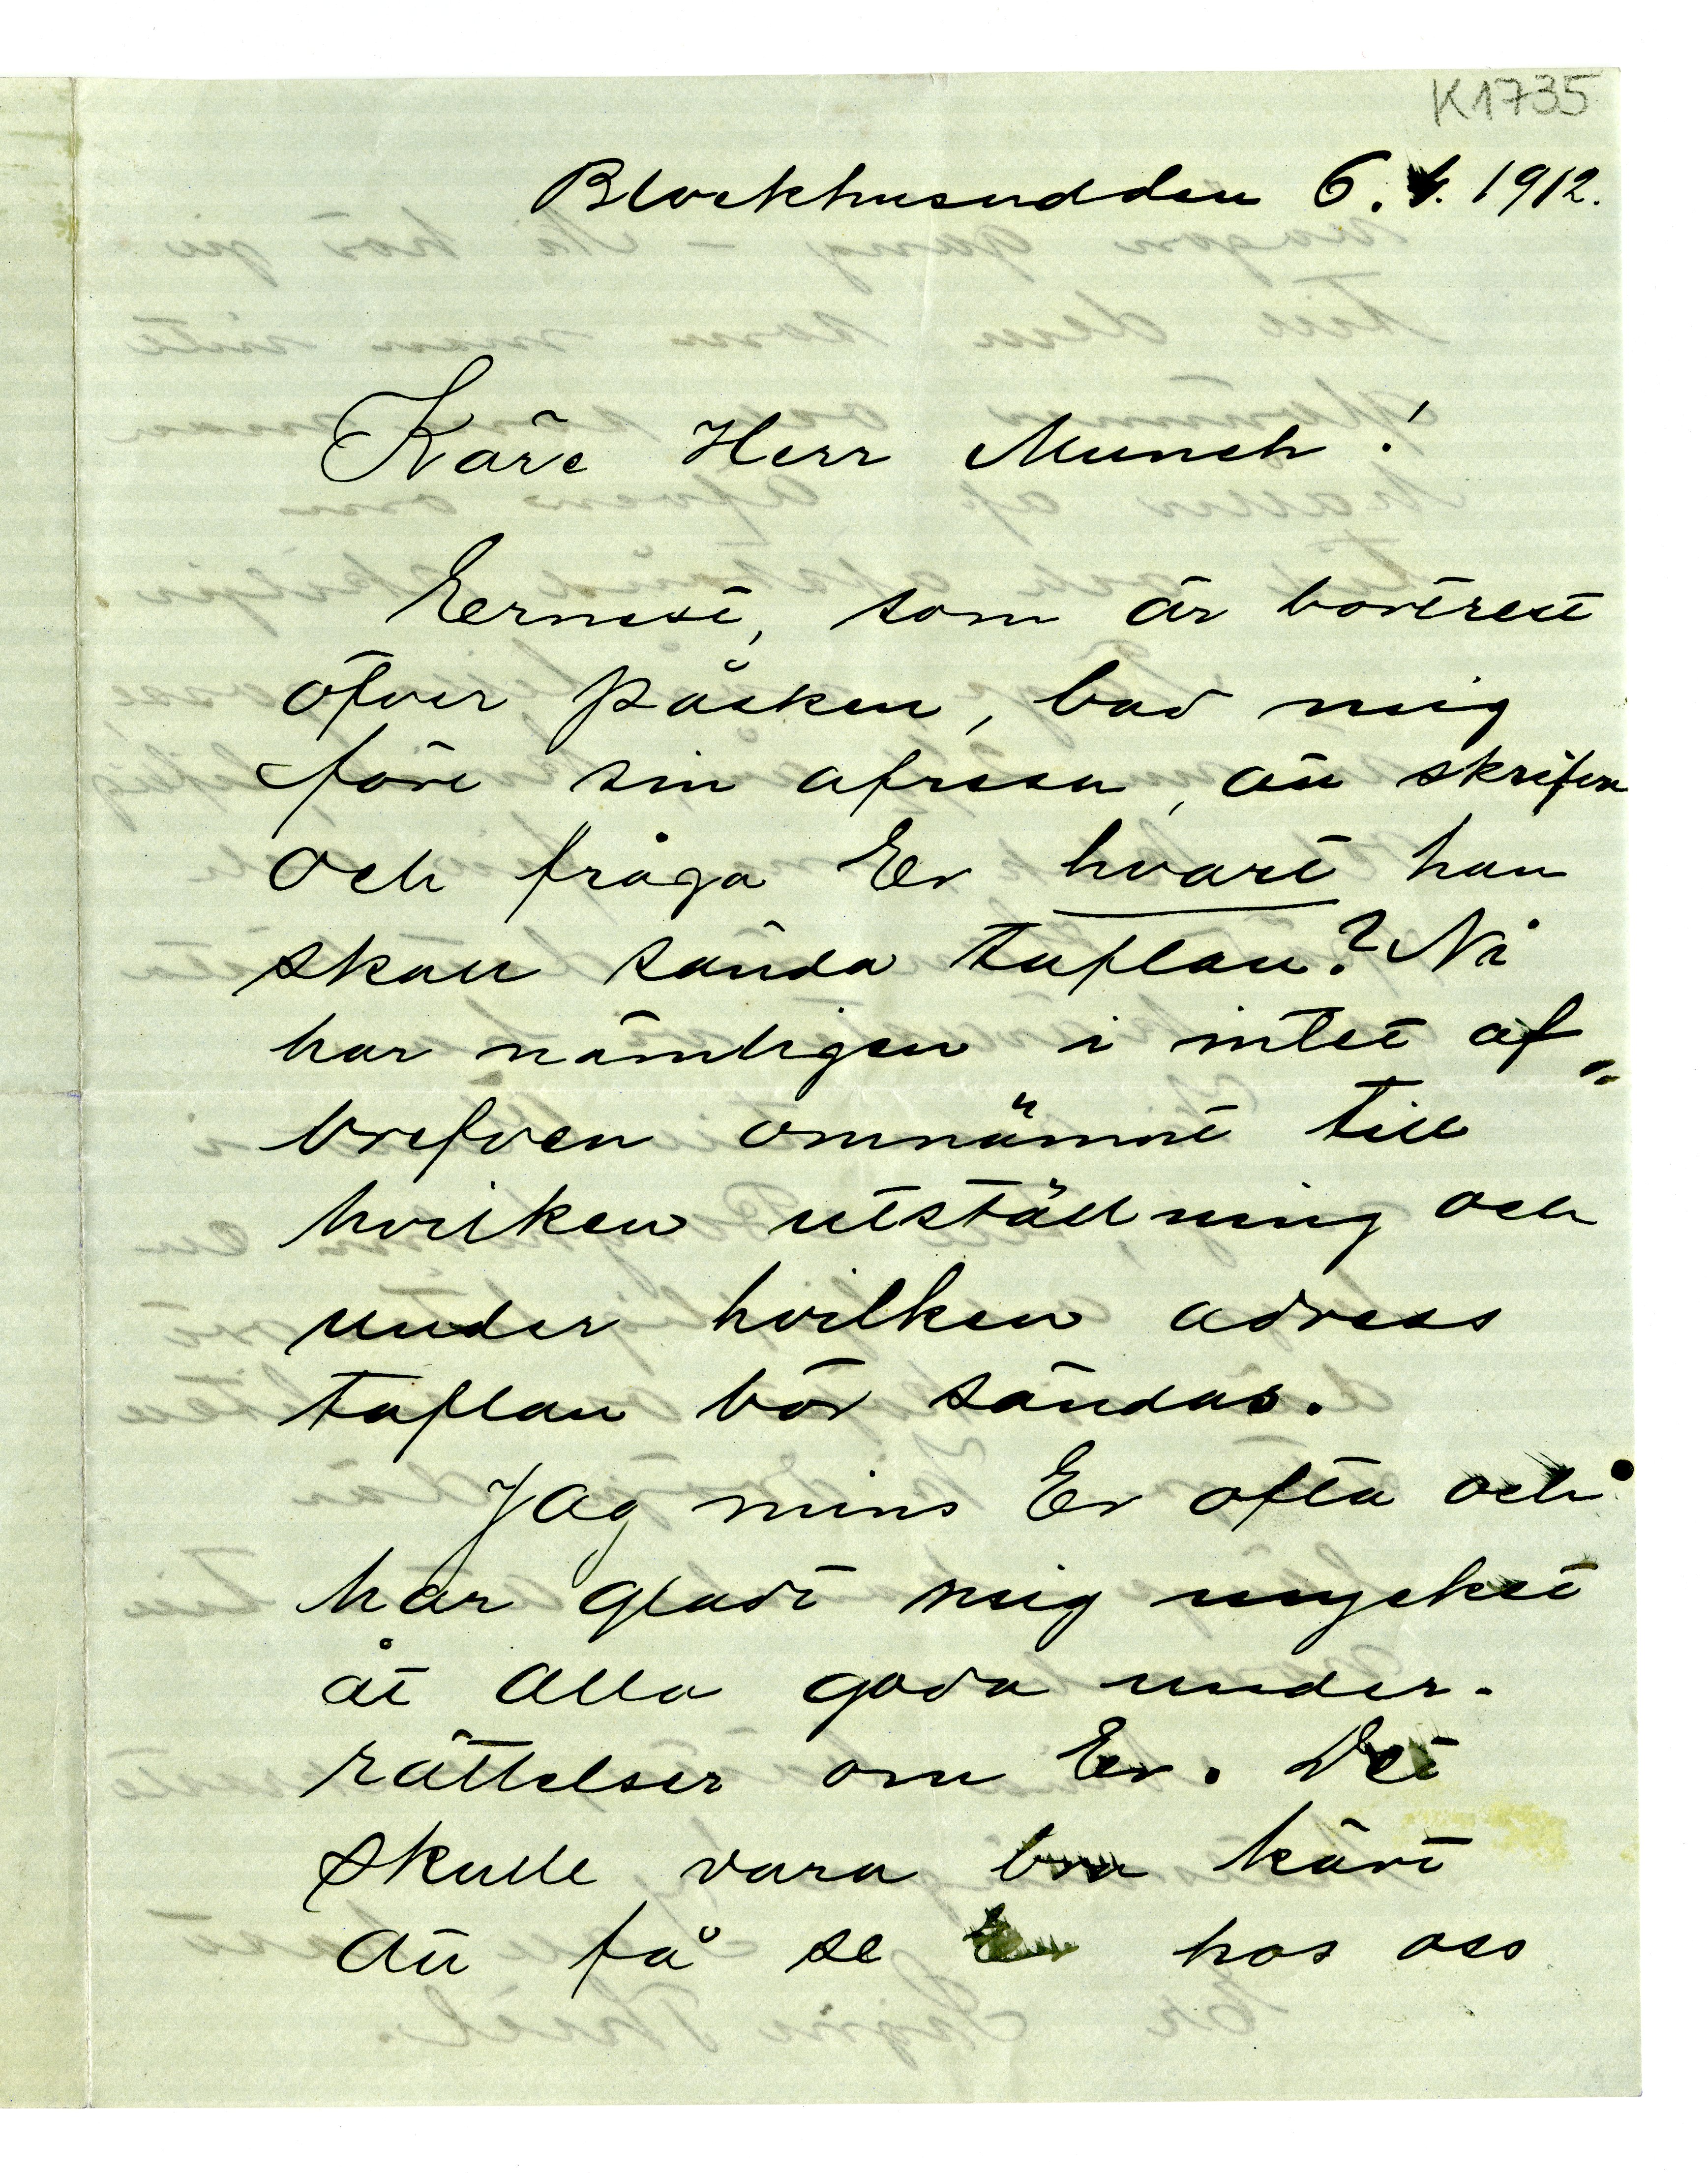 K1735
Blockhusudden 6. 4. 1912.
Käre Herr Munch!
Eernest, som är bortrest
öfver påsken, bad mig
före sin afresa, att skrifva
och fråga Er hvart han
skall sända taflan? Ni
har nämligen i intet af
brefven omnämnt till
hvilken utställning och
under hvilken adress
taflan bör sändas.
Jag mins Er ofta och
har gladt mig mycket
åt alla goda under-
rättelser om Er. Det
skulle vara bra kärt
att få se Er hos oss